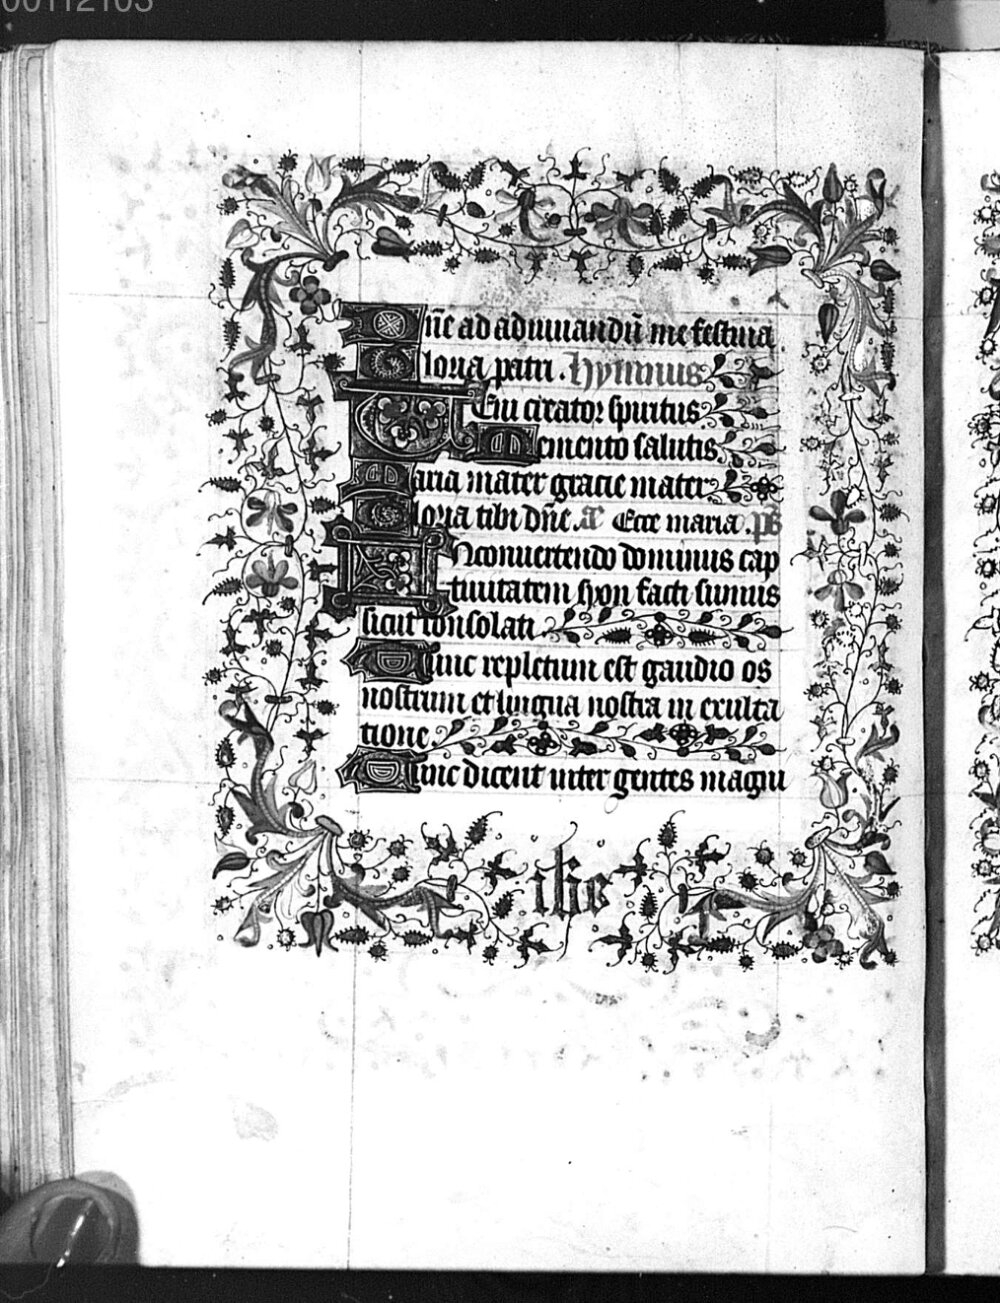 00112103
Dñe ad adiuuandũ me festina
Gloria patri. Hymnus
Veni creator spiritus
Memento salutis
Maria mater gracie mater
Gloria tibi dñe. añ Ecce maria. ps̃
In conuertendo dominus cap
tiuitatem syon facti sumus
sicut consolati.
Tunc repletum est gaudio os
nostrum et lingua nostra in exulta
tione.
Tunc dicent inter gentes magni
ihe